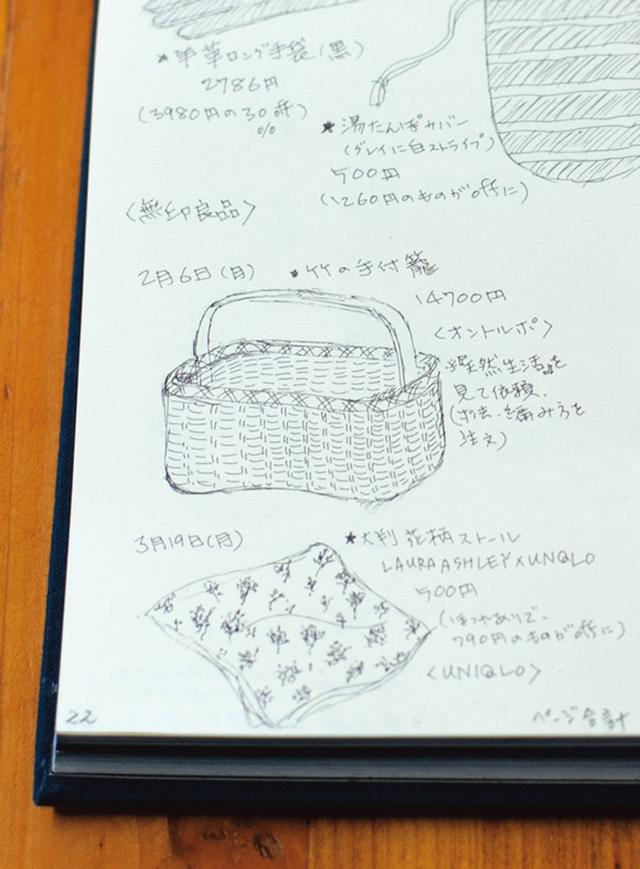 ★羊革ロング手袋(黒)
2786円
(3980円の30%off)
★湯たんぽカバー
(グレイに白ストライプ)
500円
(1260円のものがoffに)
〈無印良品〉
2月6日(月)
★竹の手付籠
14700円
〈オントルポ〉
※天然生活を
見て依頼、
(寸法、編み方を
注文)
3月19日(月)
★大判花柄ストール
LAURA ASHLEY×UNIQLO
500円
(ほつれありで、
790円のものがoffに)
〈UNIQLO〉
22
ページ合計